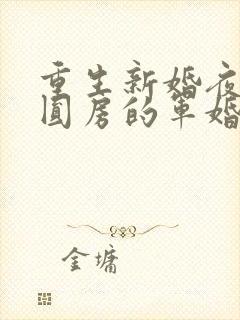 重生新婚夜
圆房的军婚
金墉